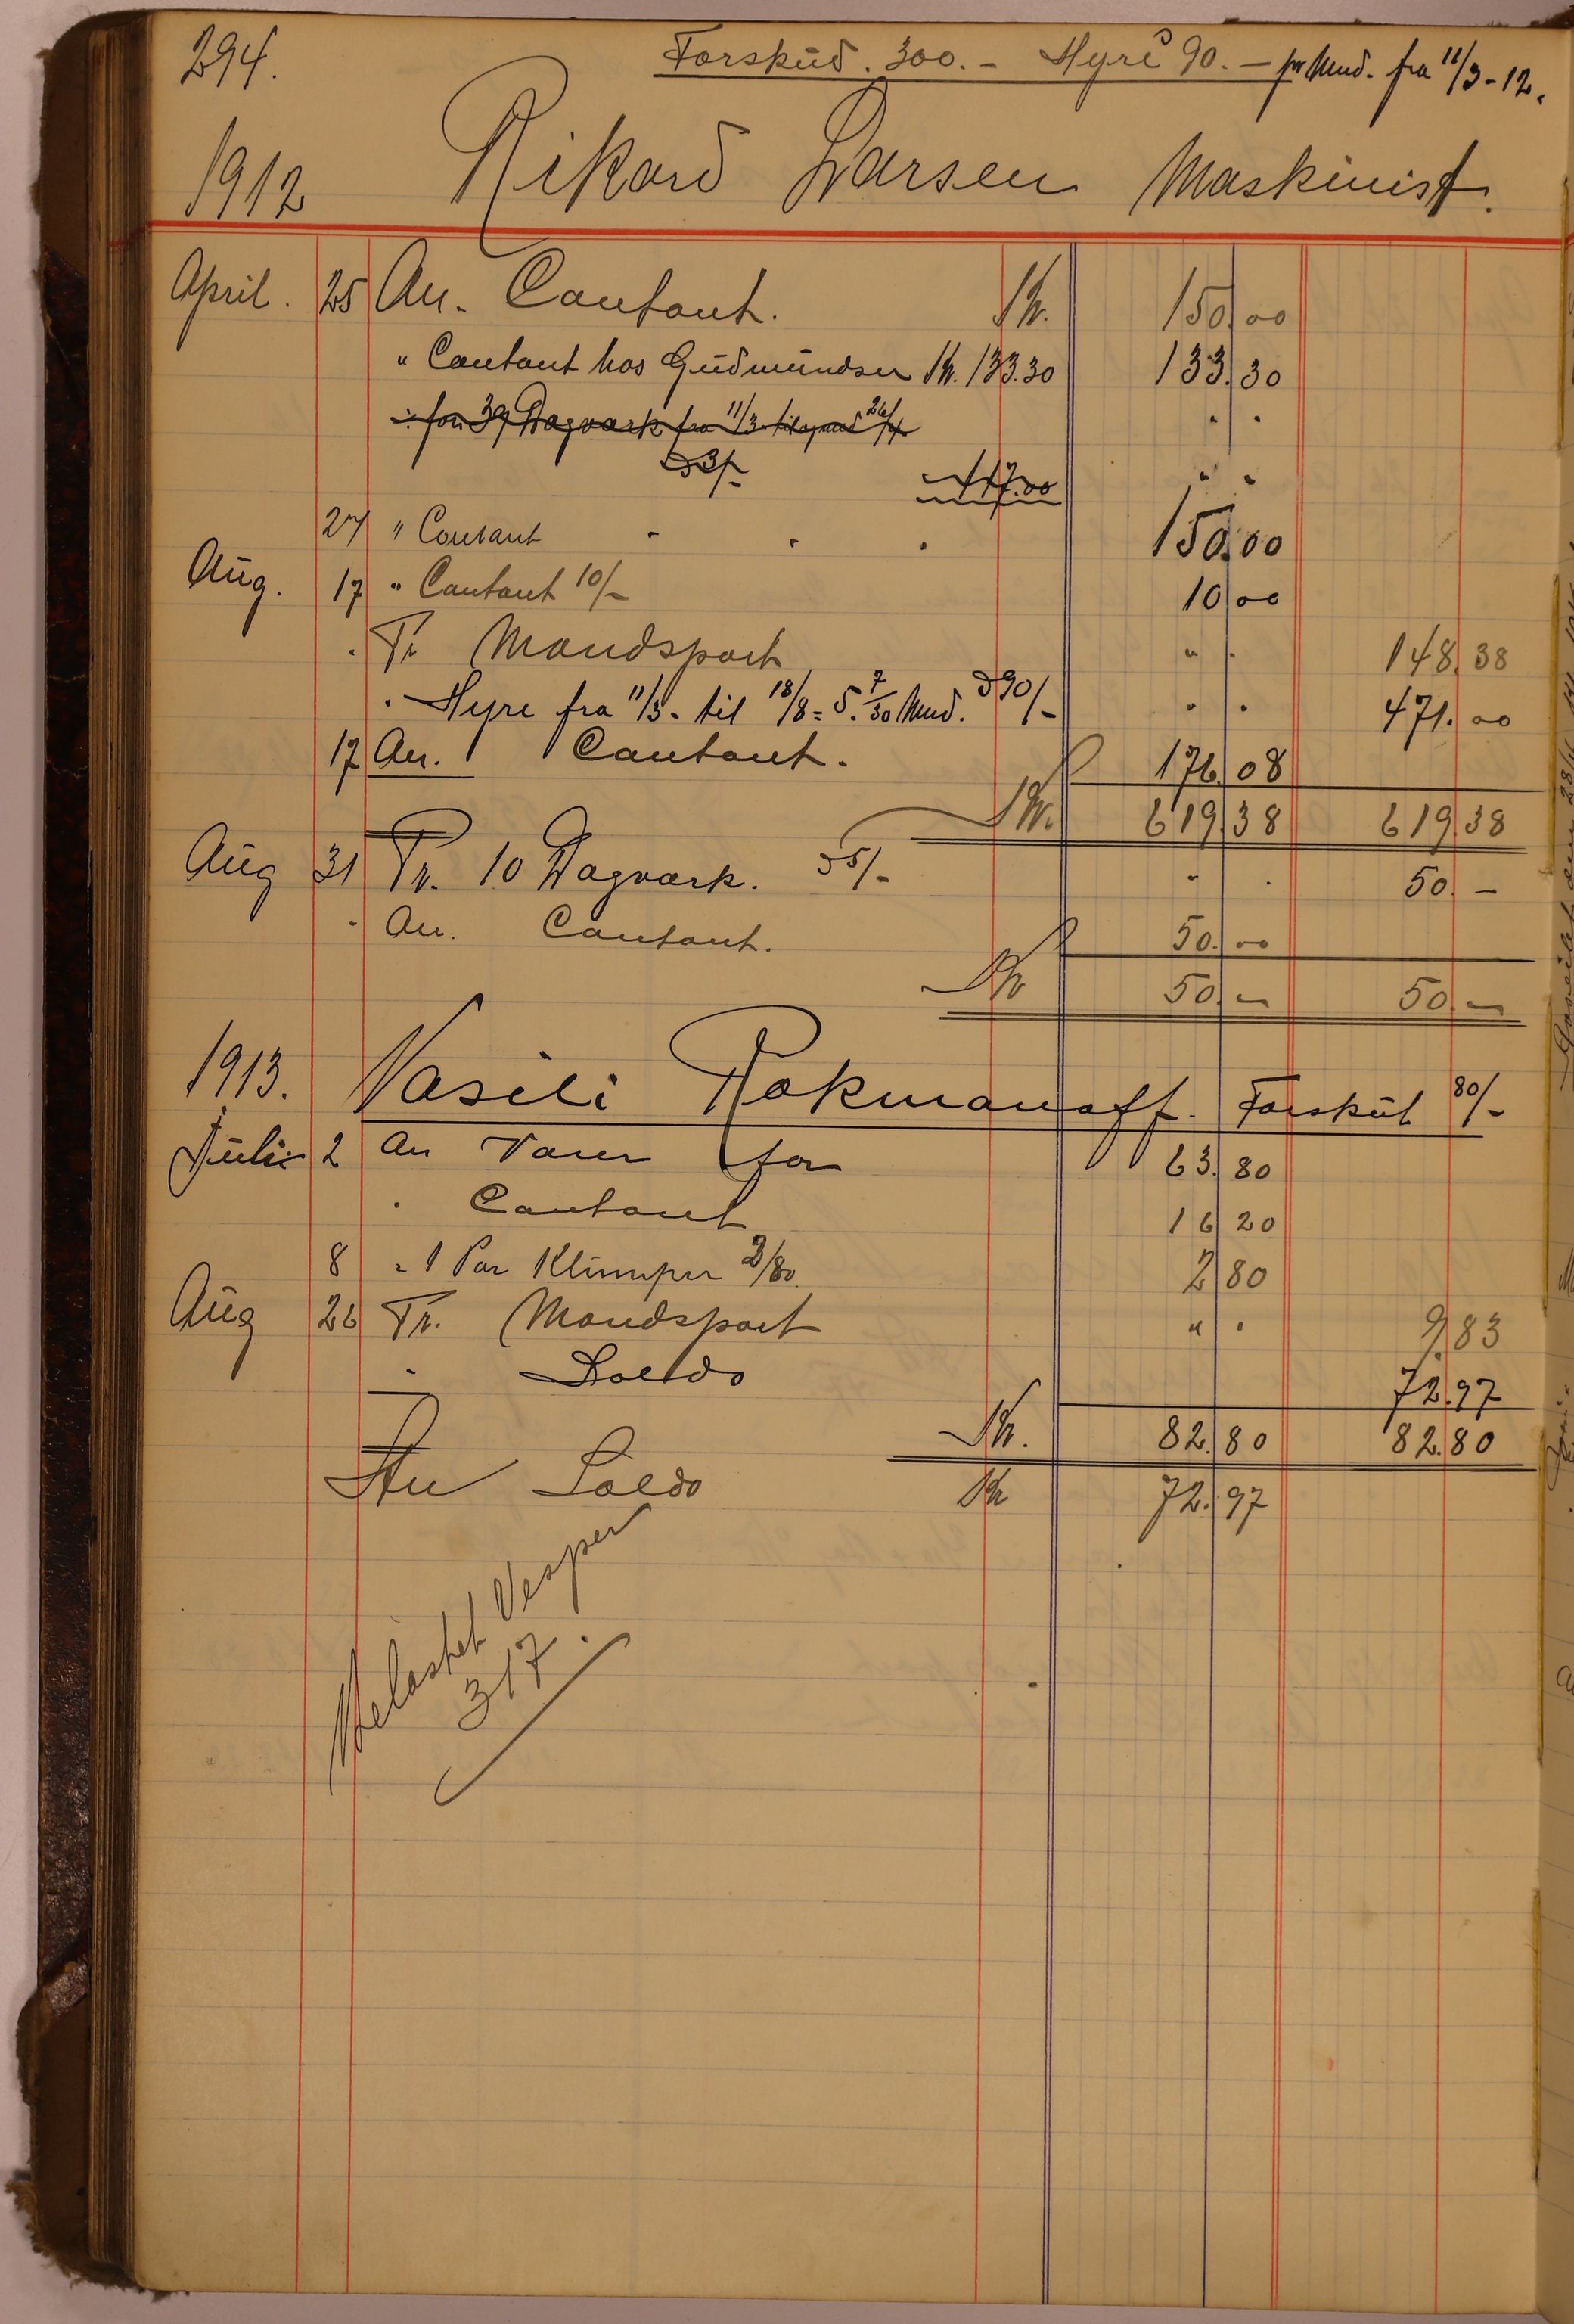 294. Forskud. 300.- Hyre 90.- pr Mnd. fra 11/3-12.
1912 Rikard Larsen Maskinist.
April. 25 An. Contant. Kr. 150.00
" Contant hos Gudmundsen Kr. 133.30 133.30
" for 39 Dagværk fra 11/3 til og med 26/4
a 3/- 117.00 " "
27 " Contant - - - 150.00
Aug. 17 " Contant 10/- 10.00
. Pr Mandspart " . 148.38
. Hyre fra 11/3 - til 18/8 = 5. 7/30 Mnd. a 90/- " . 471.00
17 An. Contant. 176.08
Kr. 619.38 619.38
Aug 31 Pr. 10 Dagværk. a 5/- - . 50.-
- An. Contant. 50.00
Kr 50.- 50.-
1913. Vasili Rokmanoff. Forskut 80/-
Juli 2 An Varer for 63.80
. Contant 16 20
8 " 1 Par Klumper 2/80 2 80
Aug 26 Pr. Mandspart " . 9.83
- Saldo 72.97
Kr. 82.80 82.80
An Saldo Kr 72.97
Belastet Vesper
317.